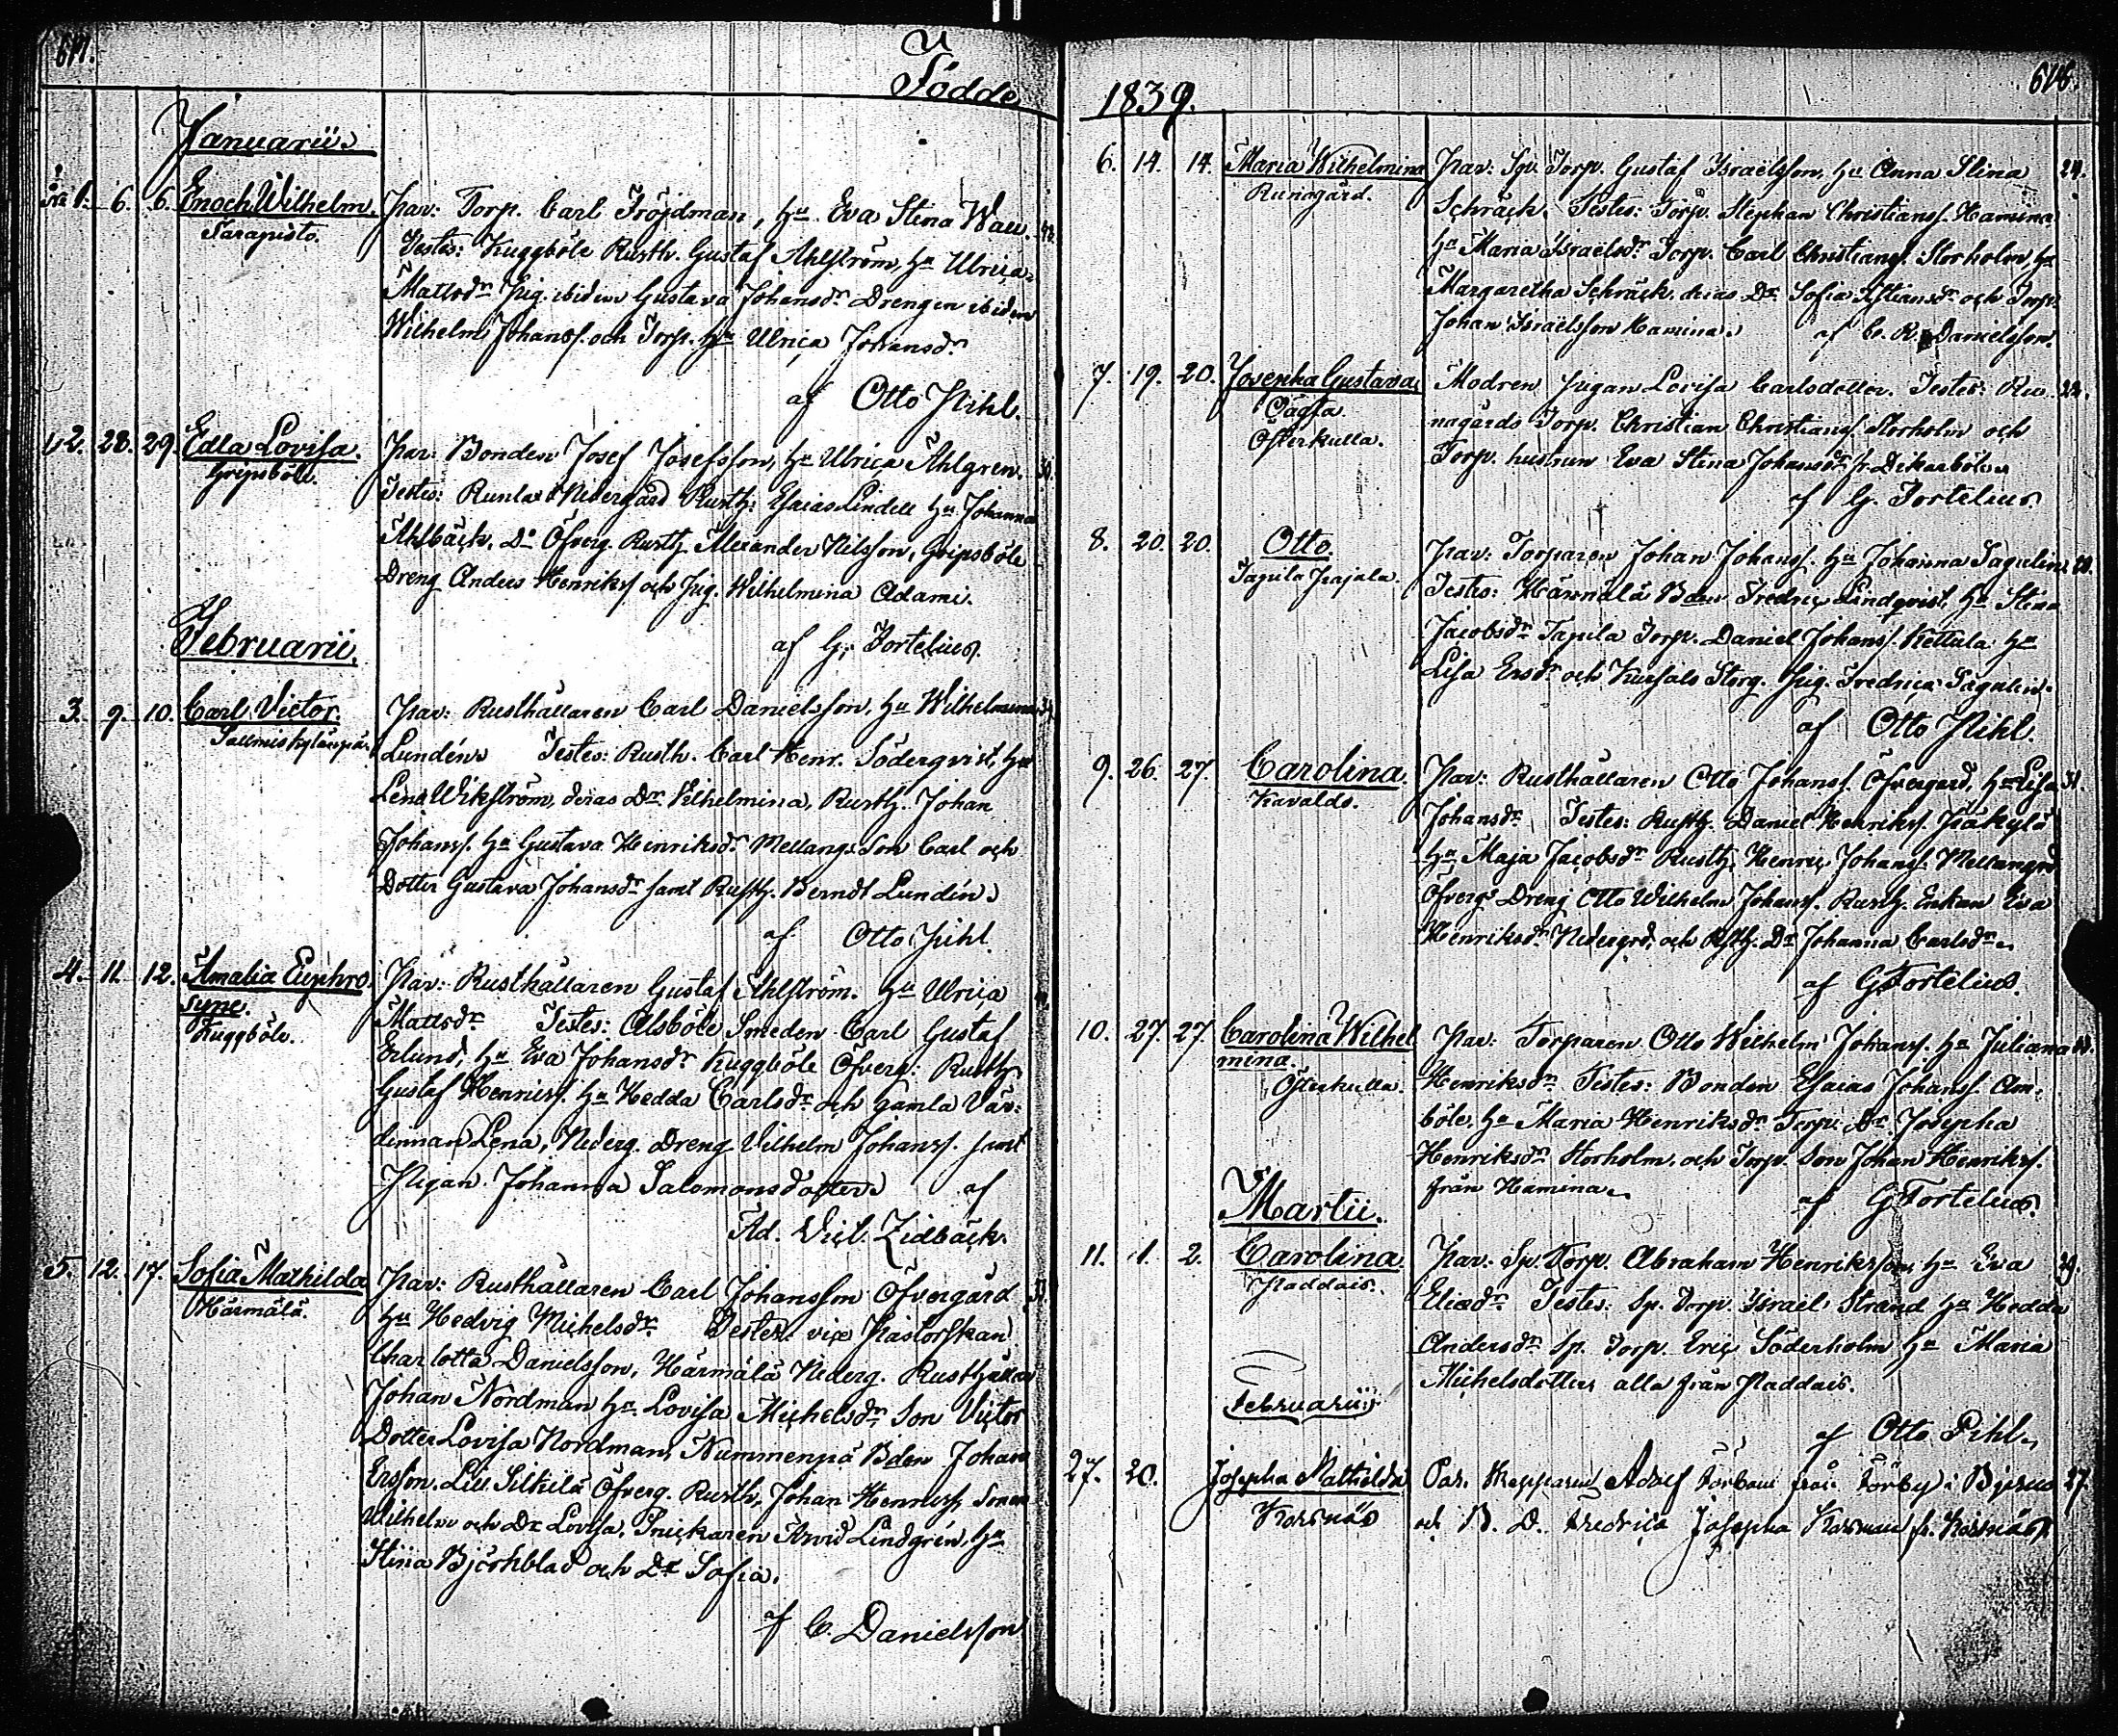 Födde
Januarii.
1. 6. 6. Enoch Wilhelm. Par: Torp. Carl Fröjdman, Hu Eva Stina Wall.
Sarapisto. Testes: Kuggböle Rusth. Gustaf Ahlström, Hu Ulrica
Mattsdr Pig. ibidem Gustava Johansdr Drengen ibidem
Wilhelm Johanss. och Torp. Hu Ulrica Johansdr
af Otto Pihl.
2. 28. 29. Edla Lovisa. Par: Bonden Josef Josefsson, Hu Ulrica Ahlgren.
Gripsböle. Testes: Runlax Nedergård Rusth: Esaias Lindell Hu Johanna
Ahlbäck, Do Öfverg. Rusth. Alexander Nilsson, Gripsböle
Dreng Anders Henrikss. och Pig. Wilhelmina Adami.
af G. Fortelius.
Februarii.
3. 9. 10. Carl Victor. Par: Rusthållaren Carl Danielsson, Hu Wilhelmina
Lundén. Testes: Rusth. Carl Henr. Söderqvist, Hu
Lena Wikström, deras Dr Vilhelmina, Rusth. Johan
Johanss. Hu Gustava Henriksdr Mellang. Son Carl och
Dotter Gustava Johansdr samt Rusth. Berndt Lundén.
af Otto Pihl.
4. 11. 12. Amalia Euphro- Par: Rusthållaren Gustaf Ahlström. Hu Ulrica
syne. Mattsdr Testes: Alsböle Smeden Carl Gustaf
Kuggböle. Erlund, Hu Eva Johansdr Kuggböle Öfverg: Rusth.
Gustaf Henrics. Hu Hedda Carlsdr och gamla Vär-
dinnan Lena, Nederg. Dreng Vilhelm Johanss. samt
Pigan Johanna Salomonsdotter. af
Ad. Vicl. Zidbäck.
5. 12. 17. Sofia Mathilda Par: Rusthållaren Carl Johansson Öfvergård
Härmälä. Hu Hedvig Michelsdr. Testes: vice Pastorskan
Charlotta Danielsson, Härmälä Nederg. Rusthållaren
Johan Nordman Hu Lovisa Michelsdr Son Victor
Dotter Lovisa Nordman, Nummenpä Bden Johan
Ersson, Lill Silkilä Öfverg. Rusth. Johan Henricss. Sonen
Wilhelm och Dr Lovisa, Snickaren Arvid Lindgrén, Hu
Stina Björkblad och Dr Sofia.
af C. Danielsson
1839.
6. 14. 14. Maria Wilhelmina Par: Sp. Torp. Gustaf Israelsson, Hu Anna Stina 24.
Runogård. Schräck. Testes: Torp. Stephan Christianss. Hamina
Hu Maria Israelsdr Torp. Carl Christianss. Storholm, Hu
Margaretha Schräck, deras Dr Sofia och Torp.
Johan Israelsson Hamina. af C. R. Danielsson.
7. 19. 20. Josepha Gustava Modren Pigan Lovisa Carlsdotter. Testes: Ru- 22.
Oägta. nagårds Torp. Christian Christianss. Storholm och
Österkulla. Torp. hustrun Eva Stina Johansdr fr. Dikarböle.
af G. Fortelius.
8. 20. 20. Otto. Par: Torparen Johan Johanss. Hu Johanna Tagulin
Tagula Pajala. Testes: Härmälä Bden Fredric Lindqvist, Hu Stina
Jacobsdr Tagula Torp. Daniel Johanss. Kettula Hu
Lisa Ersdr och Storg. Pig. Fredrica Tagulin.
af Otto Pihl.
9. 26. 27. Carolina. Par: Rusthållaren Otto Johanss. Öfvergård, Hu Lisa 31.
Kavalds. Johansdr Testes: Rusth. Daniel Henrikss. Päkylä
Hu Maja Jacobsdr Rusth. Henric Johanss. Mellangrd
Öfverg. Dreng Otto Wilhelm Johanss. Rusth. Enkan Eva
Henriksdr Nedergrd, och Rusth. Dr Johanna Carlsdr.
af G Fortelius.
10. 27. 27. Carolina Wilhel- Par: Torparen Otto Wilhelm Johanss. Hu Juliana
mina. Henriksdr Testes: Bonden Esaias Johanss. Am-
Österkulla. böle, Hu Maria Henriksdr Torp. Dr Josepha
Henriksdr Storholm, och Torp. Son Johan Henrikss.
från Hamina. af G Fortelius.
Martii.
11. 1. 2. Carolina. Par: Sp. Torp. Abraham Henriksson, Hu Eva 39.
Paddais. Eliædr Testes: Sp. Torp. Israel Strand Hu Hedda
Andersdr Sp. Torp. Eric Söderholm Hu Maria
Michelsdotter alla från Paddais.
af Otto Pihl.
Februarii
27. 20. Josepha Mathilda Par. Skepparen Adolf från Förby i Bjerno 27.
Korsnäs och B. D. Fredrica Josepha Korsman fr. Korsnäs.